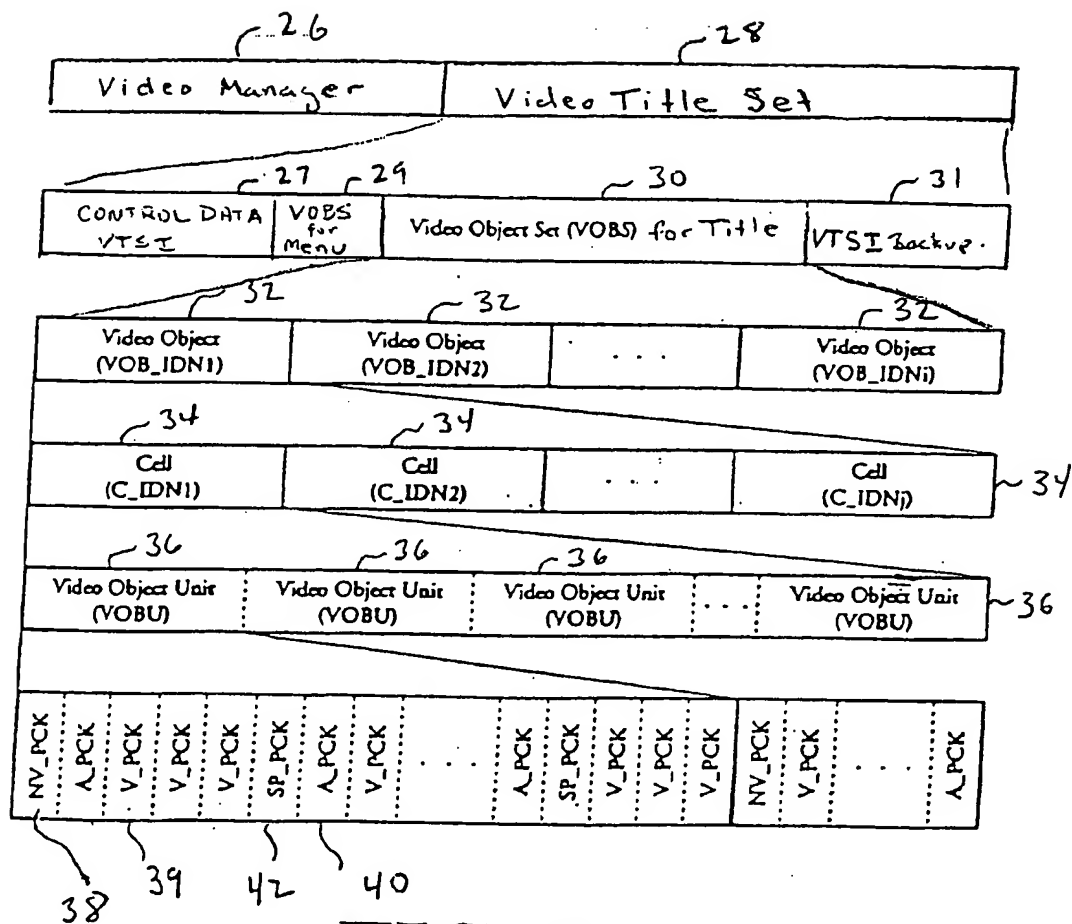 26 28
Video Manager Video Title Set
27 29 30 31
CONTROL DATA VTSI VOBS for Menu Video Object Set (VOBS) for Title VTSI Backup.
32 32 32
Video Object Video Object Video Object
(VOB_IDN1) (VOB_IDN2) . . . . (VOB_IDNi)
34 34
Cell Cell Cell
(C_IDN1) (C_IDN2) . . . . (C_IDNj) 34
36 36 36
Video Object Unit Video Object Unit Video Object Unit Video Object Unit
(VOBU) (VOBU) (VOBU) . . . . (VOBU) 36
NV_PCK A_PCK V_PCK V_PCK V_PCK SP_PCK A_PCK V_PCK . . . . A_PCK SP_PCK V_PCK V_PCK V_PCK NV_PCK V_PCK . . . . A_PCK
38 39 42 40